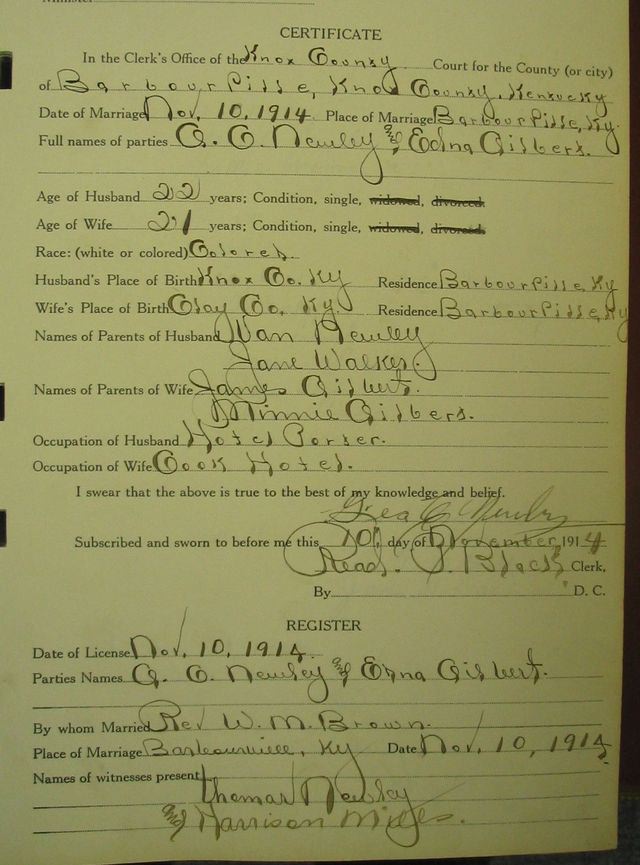 CERTIFICATE
In the Clerk's Office of the Knox County Court for the County (or city)
of Barbourville, Knox County, Kentucky
Date of Marriage Nov. 10, 1914. Place of Marriage Barbourville, Ky.
Full names of parties G. C. Newley and Edna Gilbert.
Age of Husband 22 years; Condition, single, widowed, divorced.
Age of Wife 21 years; Condition, single, widowed, divorced.
Race: (white or colored) Colored.
Husband's Place of Birth Knox Co. Ky Residence Barbourville, Ky
Wife's Place of Birth Clay Co. Ky. Residence Barbourville, Ky
Names of Parents of Husband Newley
Jane Walker.
Names of Parents of Wife James Gilbert.
Minnie Gilbert.
Occupation of Husband Hotel Porter.
Occupation of Wife Cook Hotel.
I swear that the above is true to the best of my knowledge and belief.
Geo C Newley
Subscribed and sworn to before me this 10 day of November, 1914
Read. P. Black Clerk,
By D. C.
REGISTER
Date of License Nov. 10, 1914.
Parties Names G. C. Newley and Edna Gilbert.
By whom Married Rev W. M. Brown.
Place of Marriage Barbourville, Ky Date Nov. 10, 1914
Names of witnesses present Thomas Newley
and Harrison Miles.